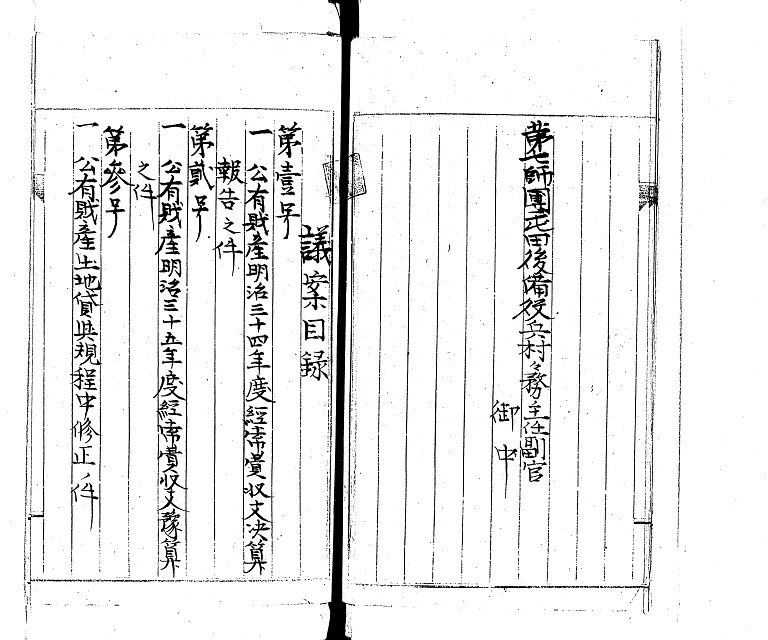 第七師團屯田後備役兵村々務主任副官
御中
議案目録
第壹号
一 公有財産明治三十四年度経常費収支決算
報告之件
第貳号
一 公有財産明治三十五年度経常費収支豫算
之件
第參号
一 公有財産土地貸与規程中修正ノ件